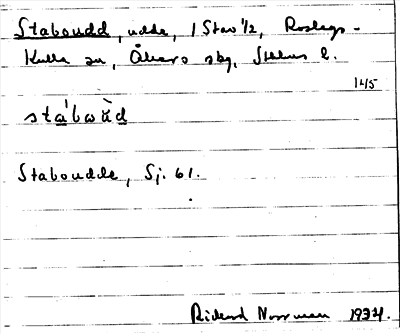 Staboudd, udde, 1 Stav 1/2, Roslags-
Kulla sn, Åkers skg, Sthlms l.
145
stábωùd
Staboudde, Sj. 61.
Rickard Norrman 1934.